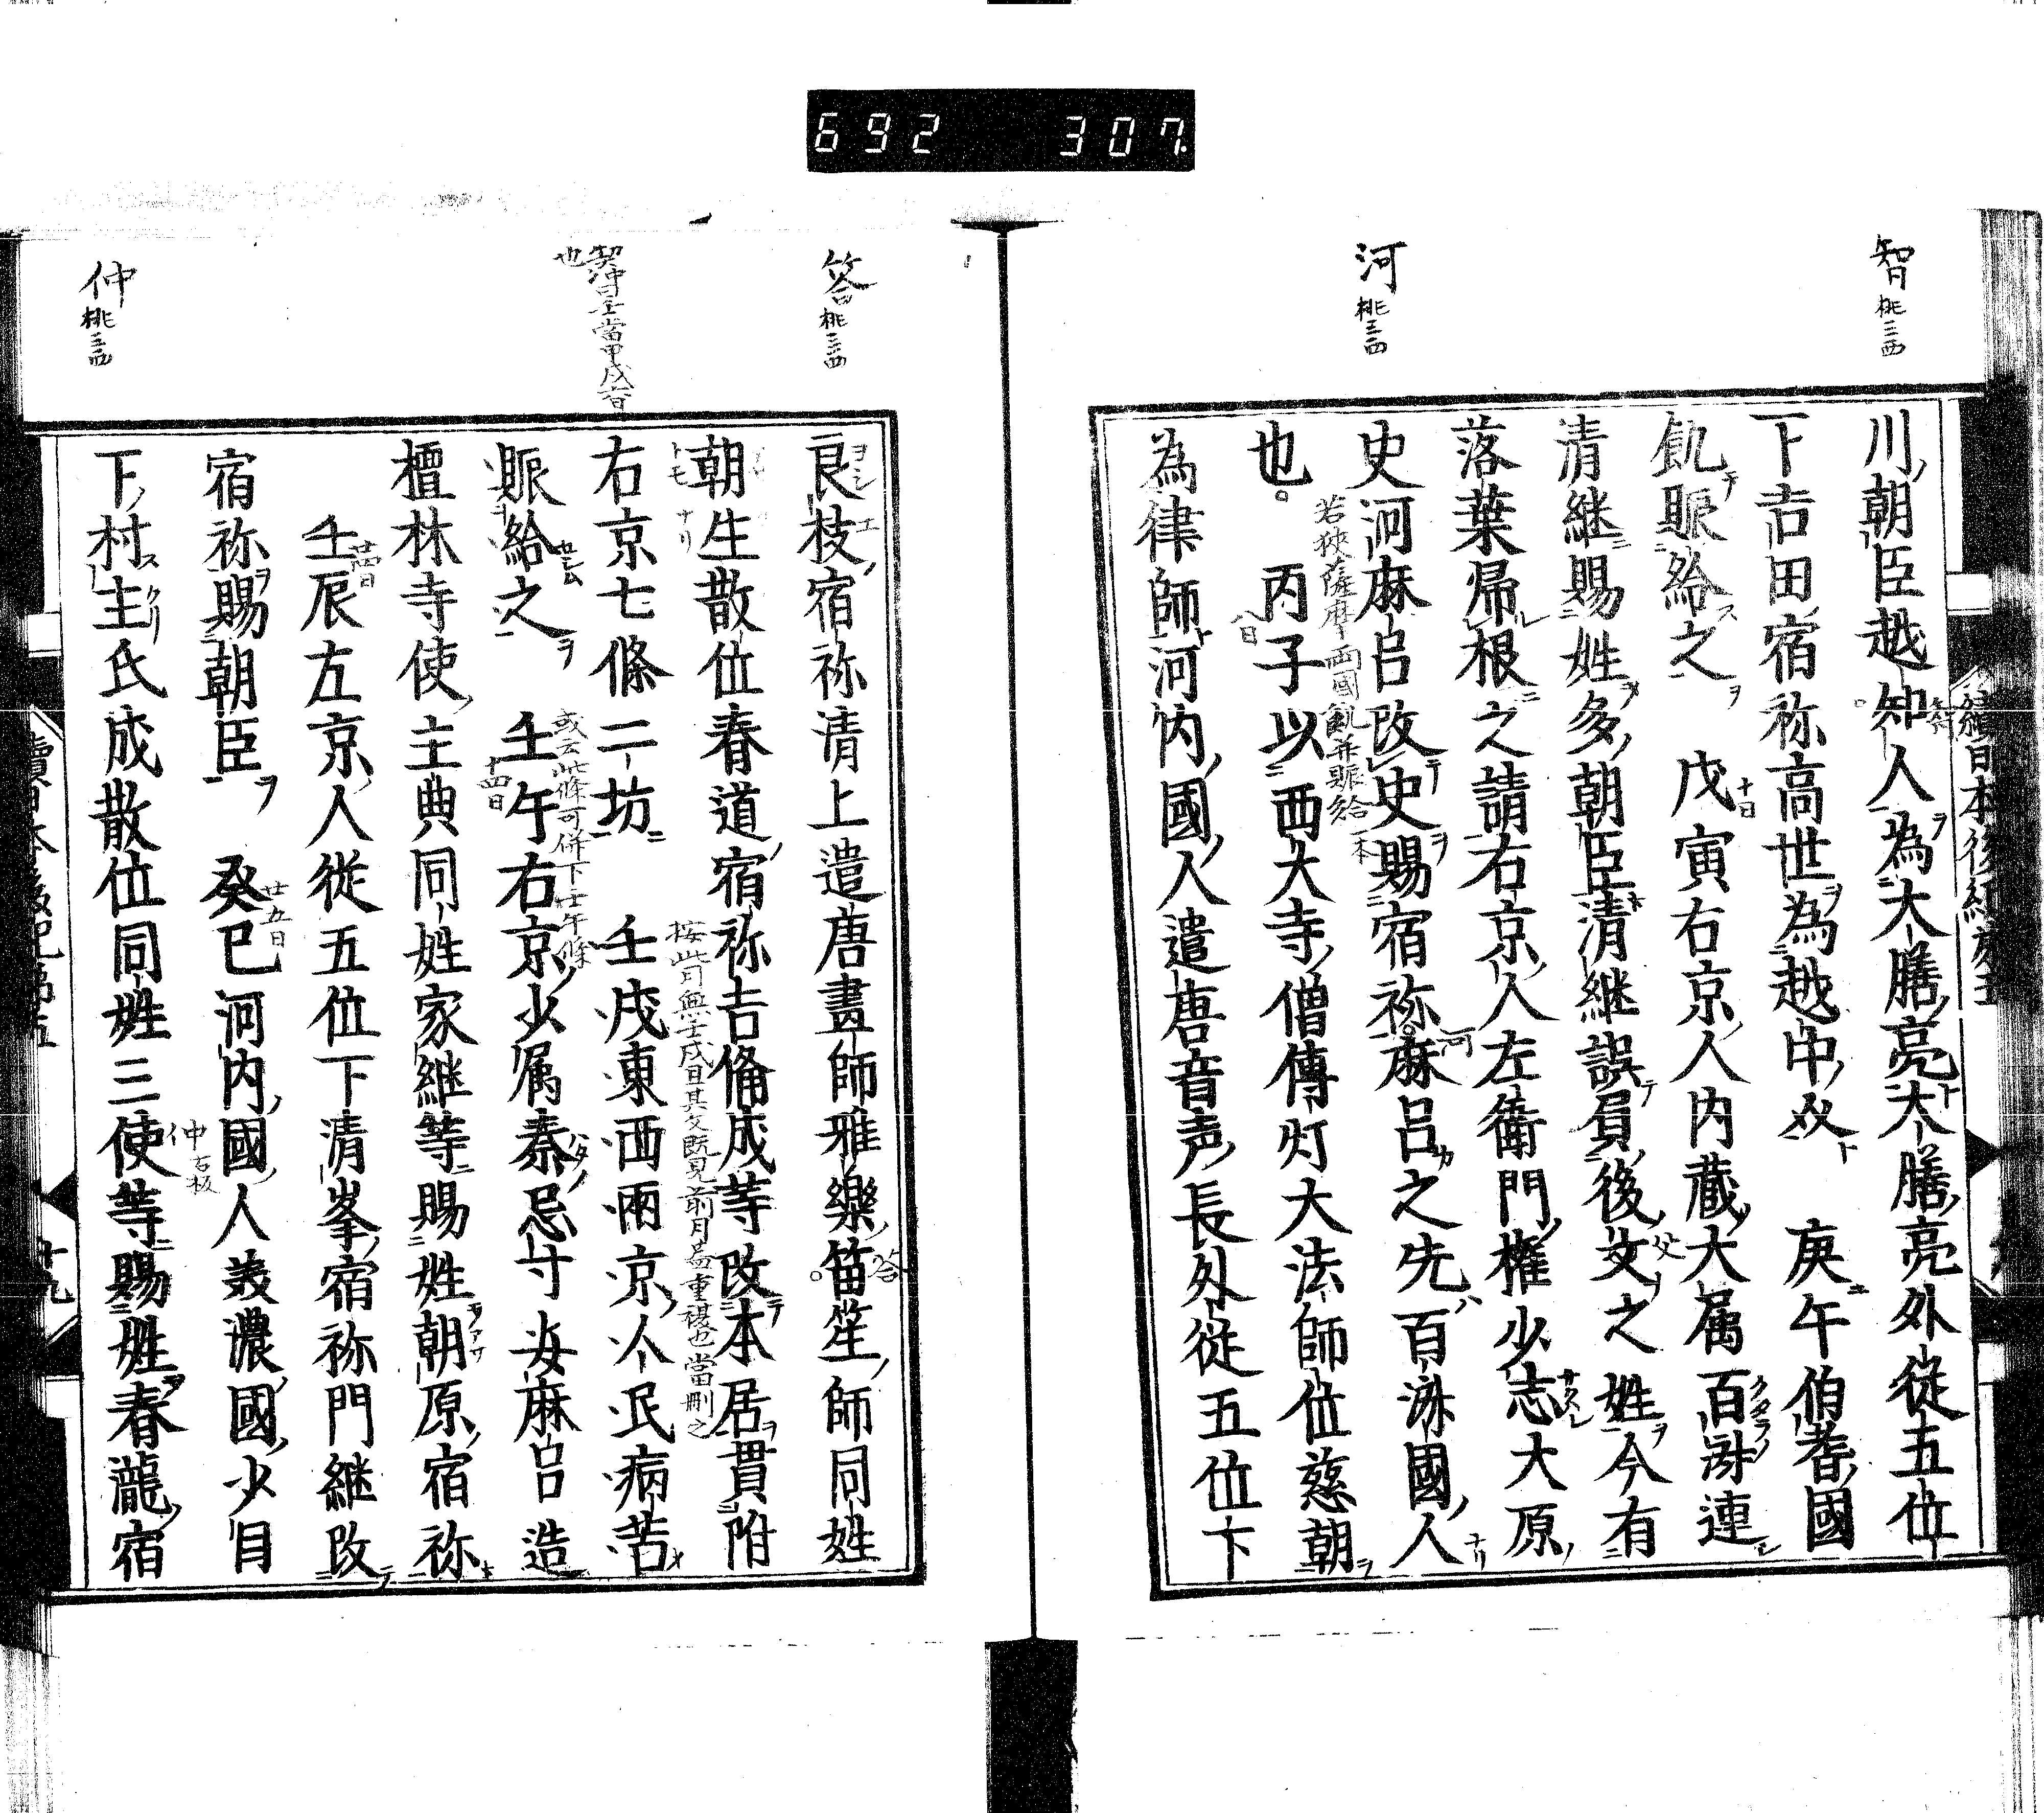 692 307
智 桃 三西
河 桃 三西
川朝臣越知人為大膳亮大膳亮外従五位
下吉田宿祢高世為越中介 庚午伯耆國
飢賑給之 戊寅右京人内蔵大属百済連
十日
清継賜姓多朝臣清継誤負後父之姓今有
落葉帰根之請右京人左衛門権少志大原
史河麻呂改史賜宿祢麻呂之先百済國人
河
也 丙子以西大寺僧傳灯大法師位慈朝
若狭薩摩両國飢并賑給 一本
八日
為律師河内國人遣唐音声長外従五位下
答 桃 三西
契沖曰壬當甲戌六日
也
仲 桃 三西
良枝宿祢清上遣唐畫師雅樂笛笙師同姓
答
朝生散位春道宿祢吉備成等改本居貫附
右京七條二坊 壬戌東西両京人民病苦
按此月無壬戌且其文既見前月蓋重複也當刪之
賑給之 壬午右京少属秦忌寸安麻呂造
或云此條可併下壬午條
十四日
檀林寺使主典同姓家継等賜姓朝原宿祢
壬辰左京人従五位下清峯宿祢門継改
廿四日
宿祢賜朝臣 癸巳河内國人美濃國少目
廿五日
下村主氏成散位同姓三使等賜姓春瀧宿
仲 古板